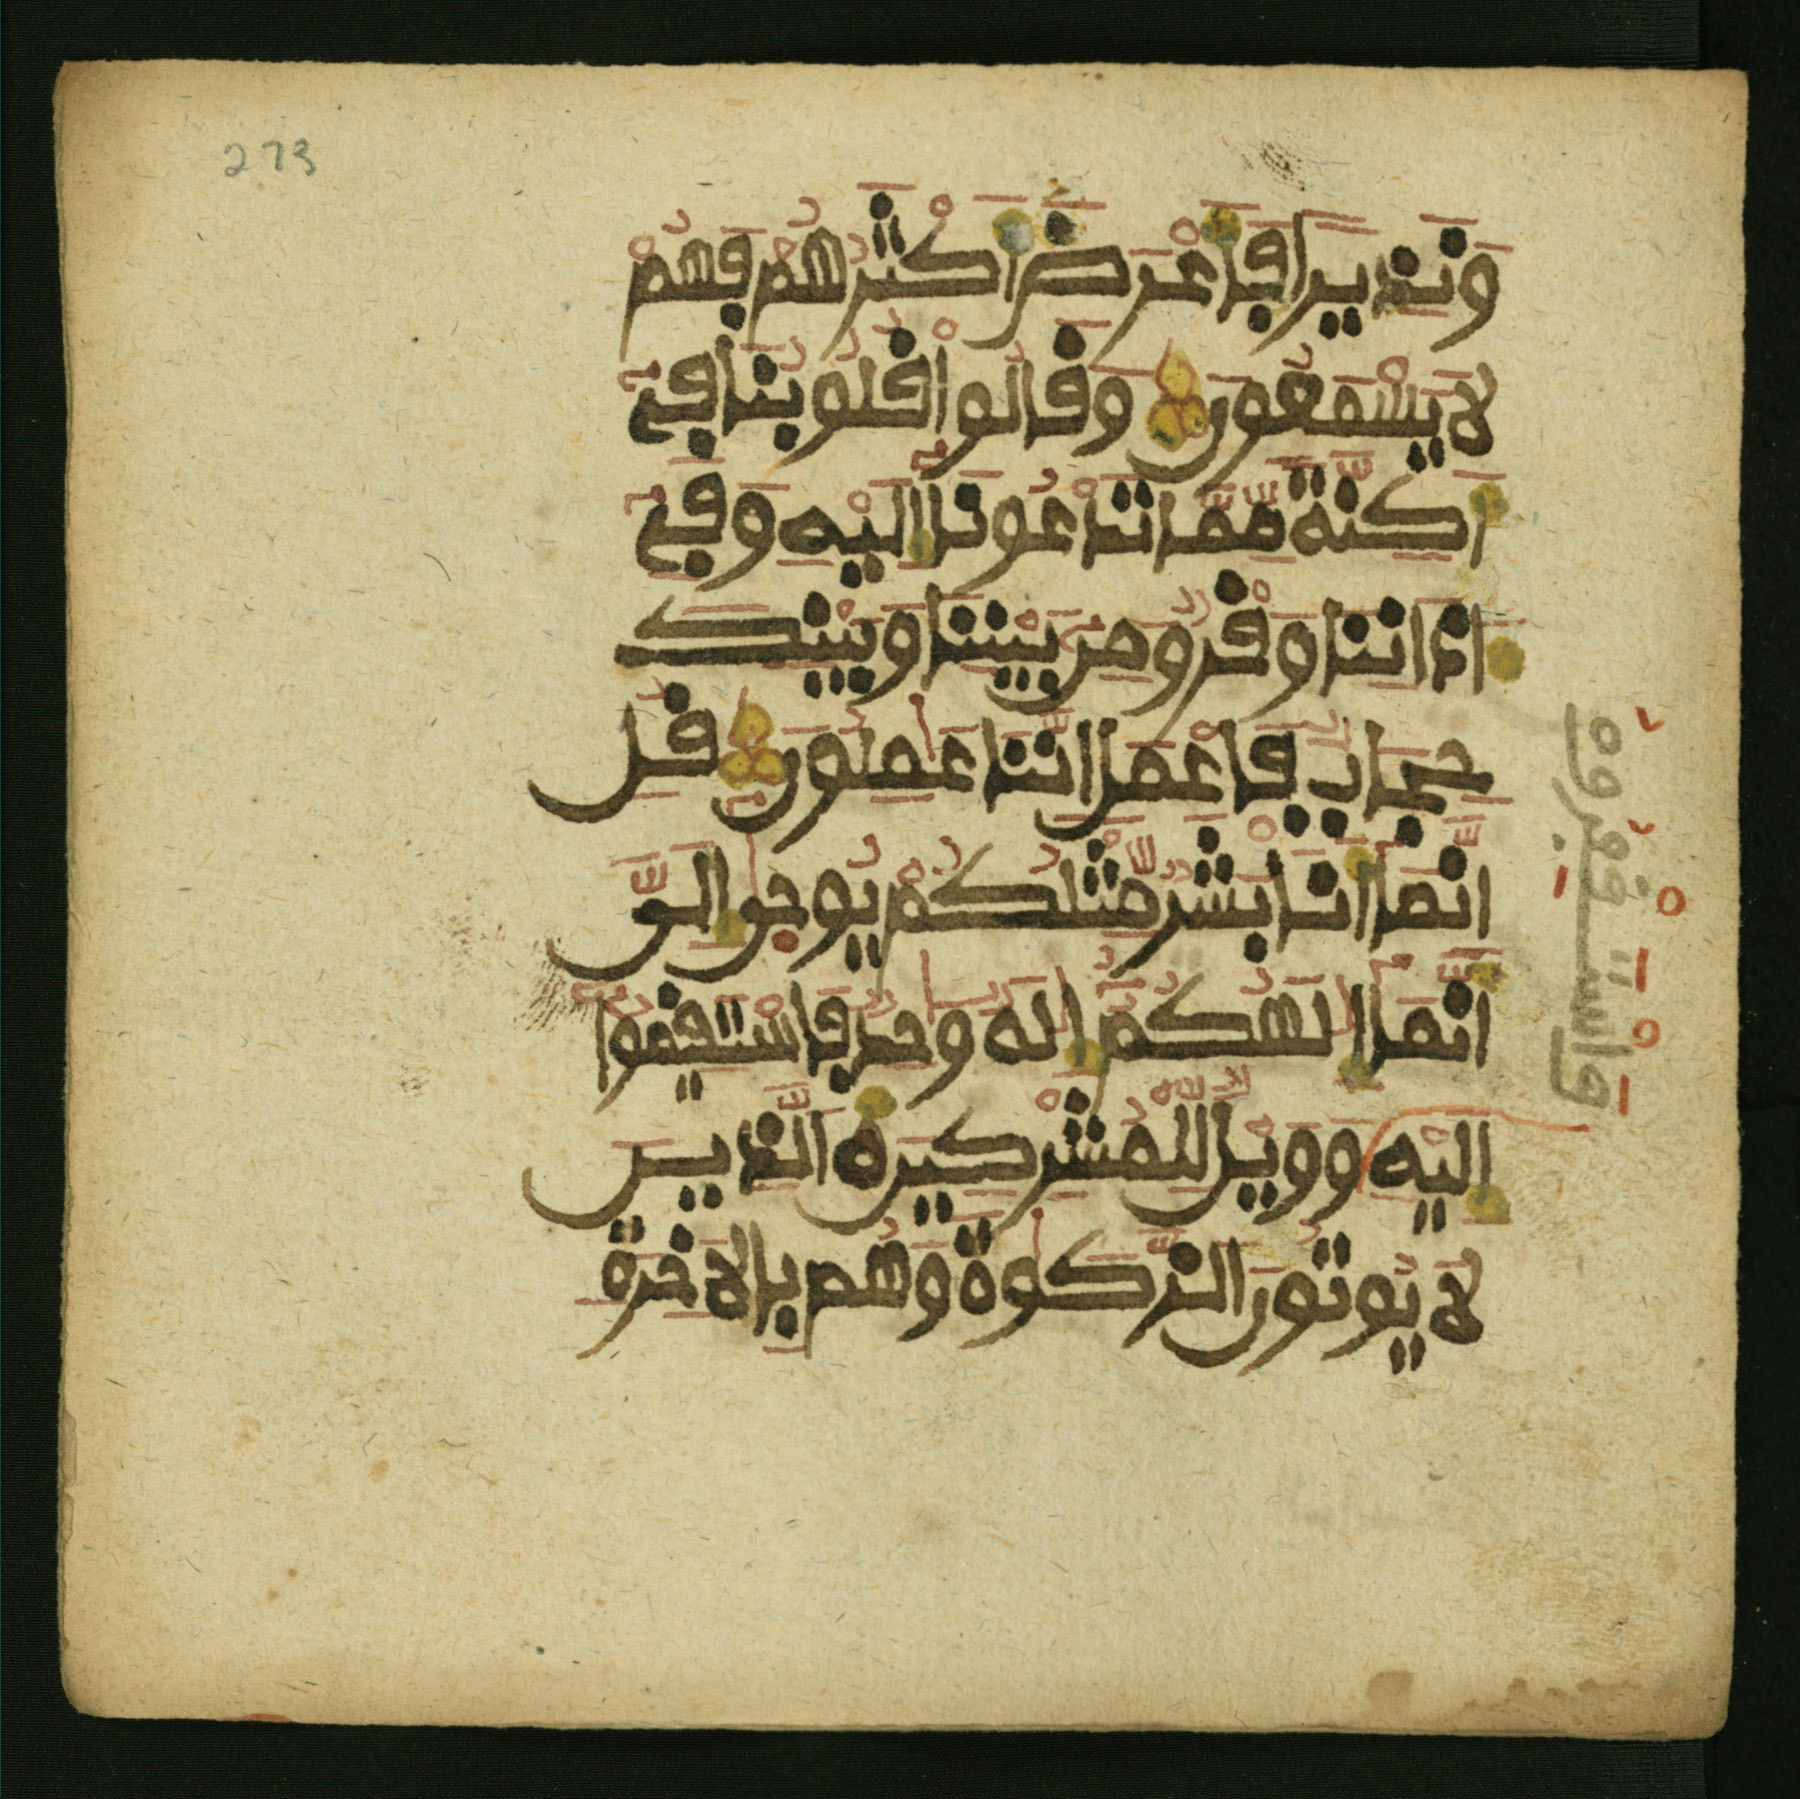 273
ونذيرا فأعرض أكثرهم فهم
لا يسمعون وقالوا قلوبنا في
أكنة مما تدعونا إليه وفي
اذاننا وقر ومن بيننا وبينك
حجاب فاعمل اننا عملون قل
إنما أنا بشر مثلكم يوحى إلي
أنما إلهكم إله وحد فاستقيموا
إليه وويل للمشركين الذين
لا يوتون الزكوة وهم بالاخرة
واستغفروه